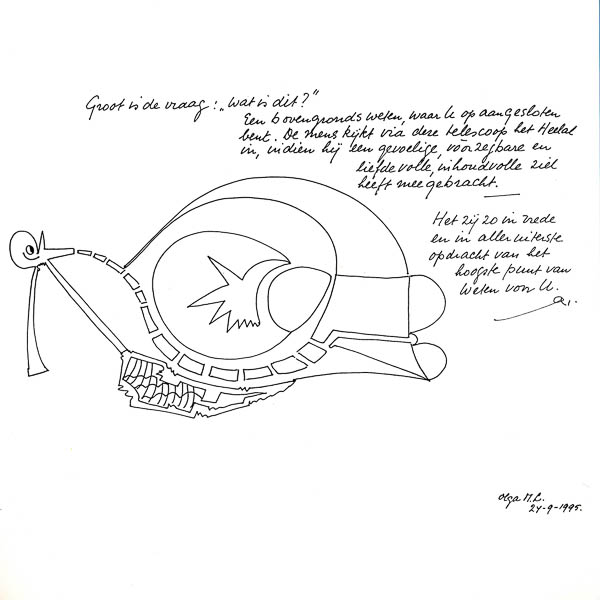 Groot is de vraag: „wat is dit?"
Een bovengronds weten, waar U op aangesloten
bent. De mens kijkt via deze telescoop het Heelal
in, indien hij een gevoelige, vóórzegbare en
liefdevolle, inhoudvolle ziel
heeft meegebracht.
Het zij zo in vrede
en in alleruiterste
opdracht van het
hoogste punt van
weten voor U.
Olga M.L.
24-9-1995.